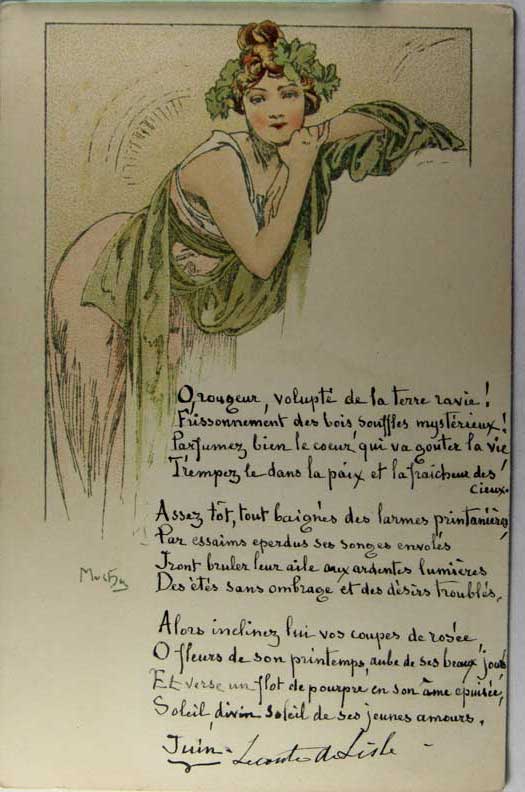 O, rougeur, volupté de la terre ravie !
Frissonnement des bois souffles mystérieux !
Parfumez bien le coeur, qui va gouter la vie
Trempez le dans la paix et la fraîcheur des
cieux.
Assez tôt, tout baignés des larmes printanières
Par essaims eperdus ses songes envolés
Iront bruler leur aile aux ardentes lumières
Des étés sans ombrage et des désirs troublés.
Alors inclinez lui vos coupes de rosée,
O fleurs de son printemps, aube de ses beaux jours
Et verse un flot de pourpre en son âme epuisée,
Soleil, divin soleil de ses jeunes amours.
Mucha
Juin - Leconte de Lisle -